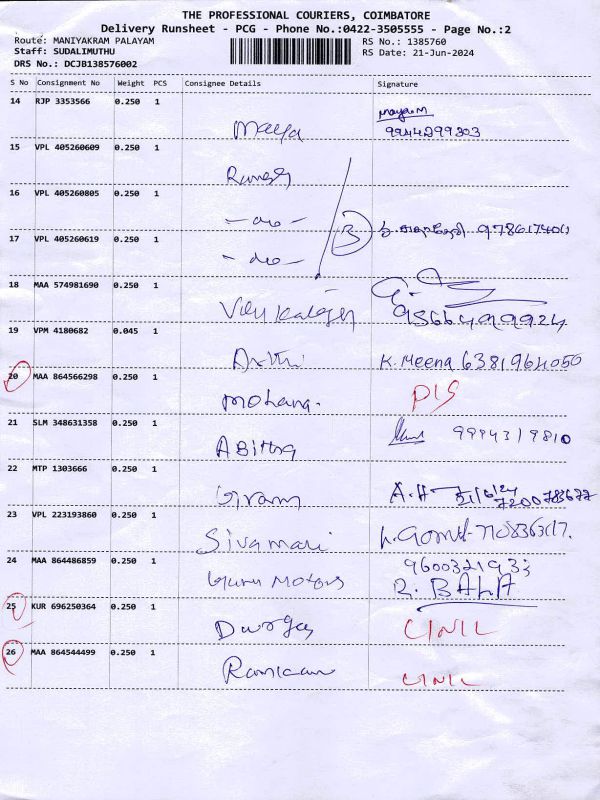 THE PROFESSIONAL COURIERS, COIMBATORE
Delivery Runsheet - PCG - Phone No.:0422-3505555 - Page No.:2
Route: MANIYAKRAM PALAYAM
RS No.: 1385760
Staff: SUDALIMUTHU
RS Date: 21-Jun-2024
DRS No.: DCJB138576002
S No Consignment No Weight PCS Consignee Details Signature
14 RJP 3353566 0.250 1
Maya 9944299303
15 VPL 405260609 0.250 1
16 VPL 405260805 0.250 1
- do - 3
17 VPL 405260619 0.250 1
- do -
18 MAA 574981690 0.250 1
19 VPM 4180682 0.045 1
K. Meena 6381964050
20 MAA 864566298 0.250 1
Mohana. DIS
21 SLM 348631358 0.250 1
ABittha 9994319810
22 MTP 1303666 0.250 1
21/6/24
7200783677
23 VPL 223193860 0.250 1
Sivamari
24 MAA 864486859 0.250 1
9600321933
Guru Motors R. BALA
25 KUR 696250364 0.250 1
Durga CINIL
26 MAA 864544499 0.250 1
CINIL